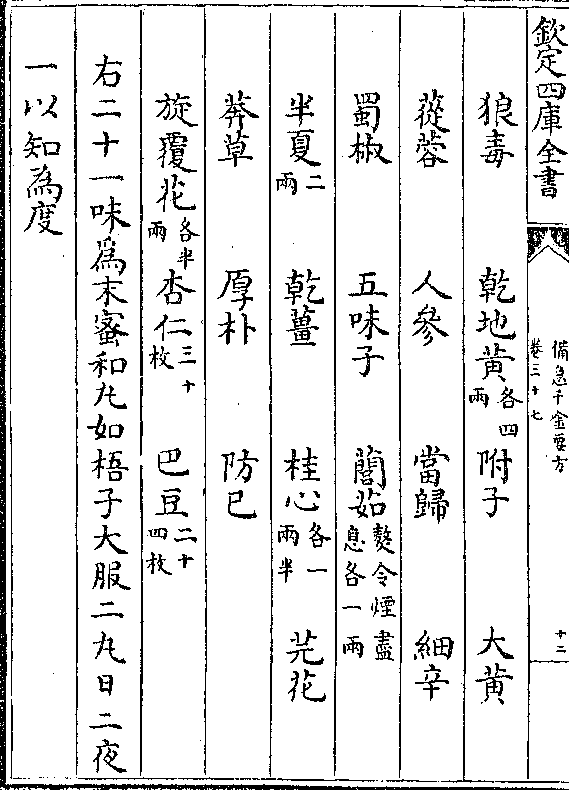 欽定四庫全書
備急千金要方
卷三十七
十二
狼毒 乾地黄各四兩 附子 大黄
蓯蓉 人參 當歸 細辛
蜀椒 五味子 䕡茹熬令煙盡息各一兩
半夏二兩 乾薑 桂心各一兩半 芫花
莽草 厚朴 防已
旋覆花各半兩 杏仁三十枚 巴豆二十四枚
右二十一味爲末蜜和丸如梧子大服二丸日二夜
一以知為度